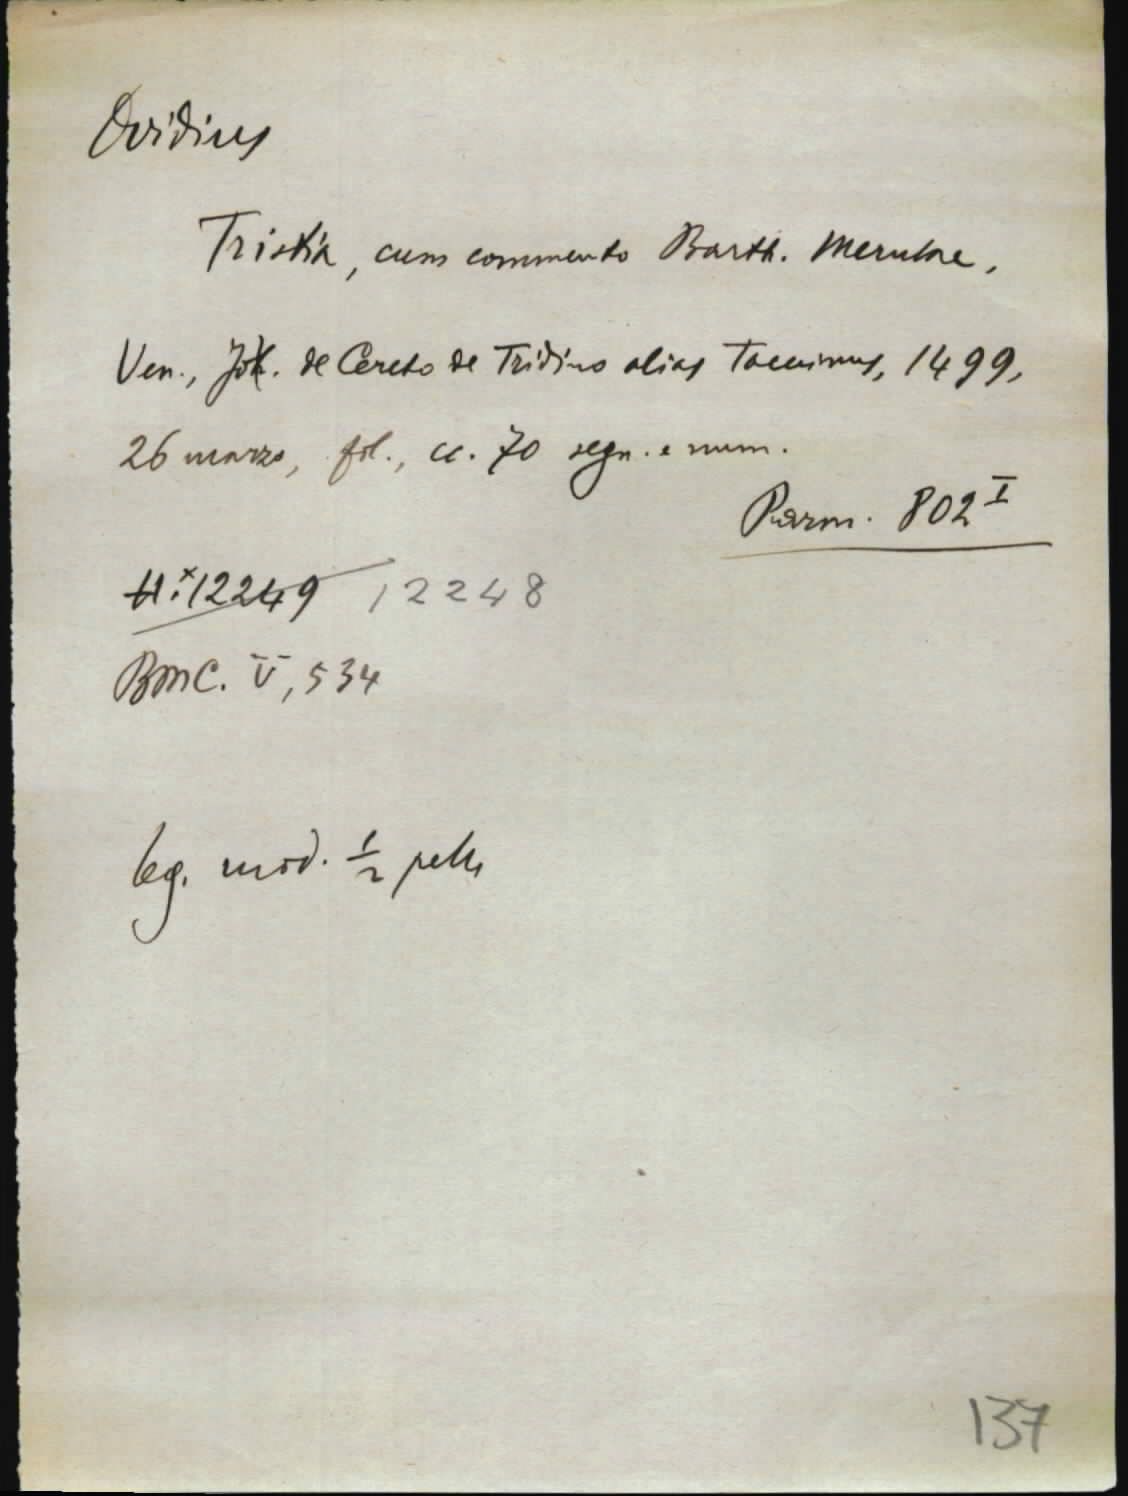 Ovidius
Tristia, cum commento Barth. Merulae.
Ven., Joh. de Cereto de Tridino alias Tacuinus, 1499,
26 marzo, fol., cc. 70 segn. e num.
Parm. 802 I
H.×12249 12248
BMC. V, 534
leg. mod. 1/2 pelle
137